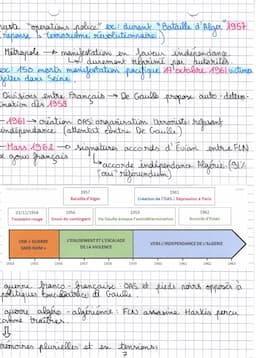 vaste "opérations police" ex: durant "Bataille d'Alger" 1957
(réponse à terrorisme révolutionnaire)
Métropole → manifestation en faveur indépendance
↳ durement réprimé par autorités
ex: 150 morts manifestation pacifique 17 octobre 1961
jetés dans Seine
Divisions entre Français → De Gaulle propose auto-déter-
mination dès 1959
- 1961 → création OAS organisation terroriste refusant
indépendance (attentat contre De Gaulle)
- Mars 1962 → signatures accords d'Evian entre FLN
français
↳ accorde indépendance Algérie (91%
"oui" référendum)
1957
Bataille d'Alger
1961
Création de l'OAS / Répression à Paris
01/11/1954
Toussaint rouge
1956
Envoi du contingent
1959
De Gaulle évoque l'autodétermination
1962
Accords d'Evian
UNE « GUERRE
SANS NOM »
L'ENLISEMENT ET L'ESCALADE
DE LA VIOLENCE
VERS L'INDÉPENDANCE DE L'ALGÉRIE
1954 1955 1956 1957 1958 1959 1960 1961 1962 1963
guerre franco-française: OAS et pieds noirs opposés à
politiques De Gaulle
guerre algéro-algérienne: FLN assassine Harkis perçu
comme traîtres
mémoires plurielles et en tensions
7